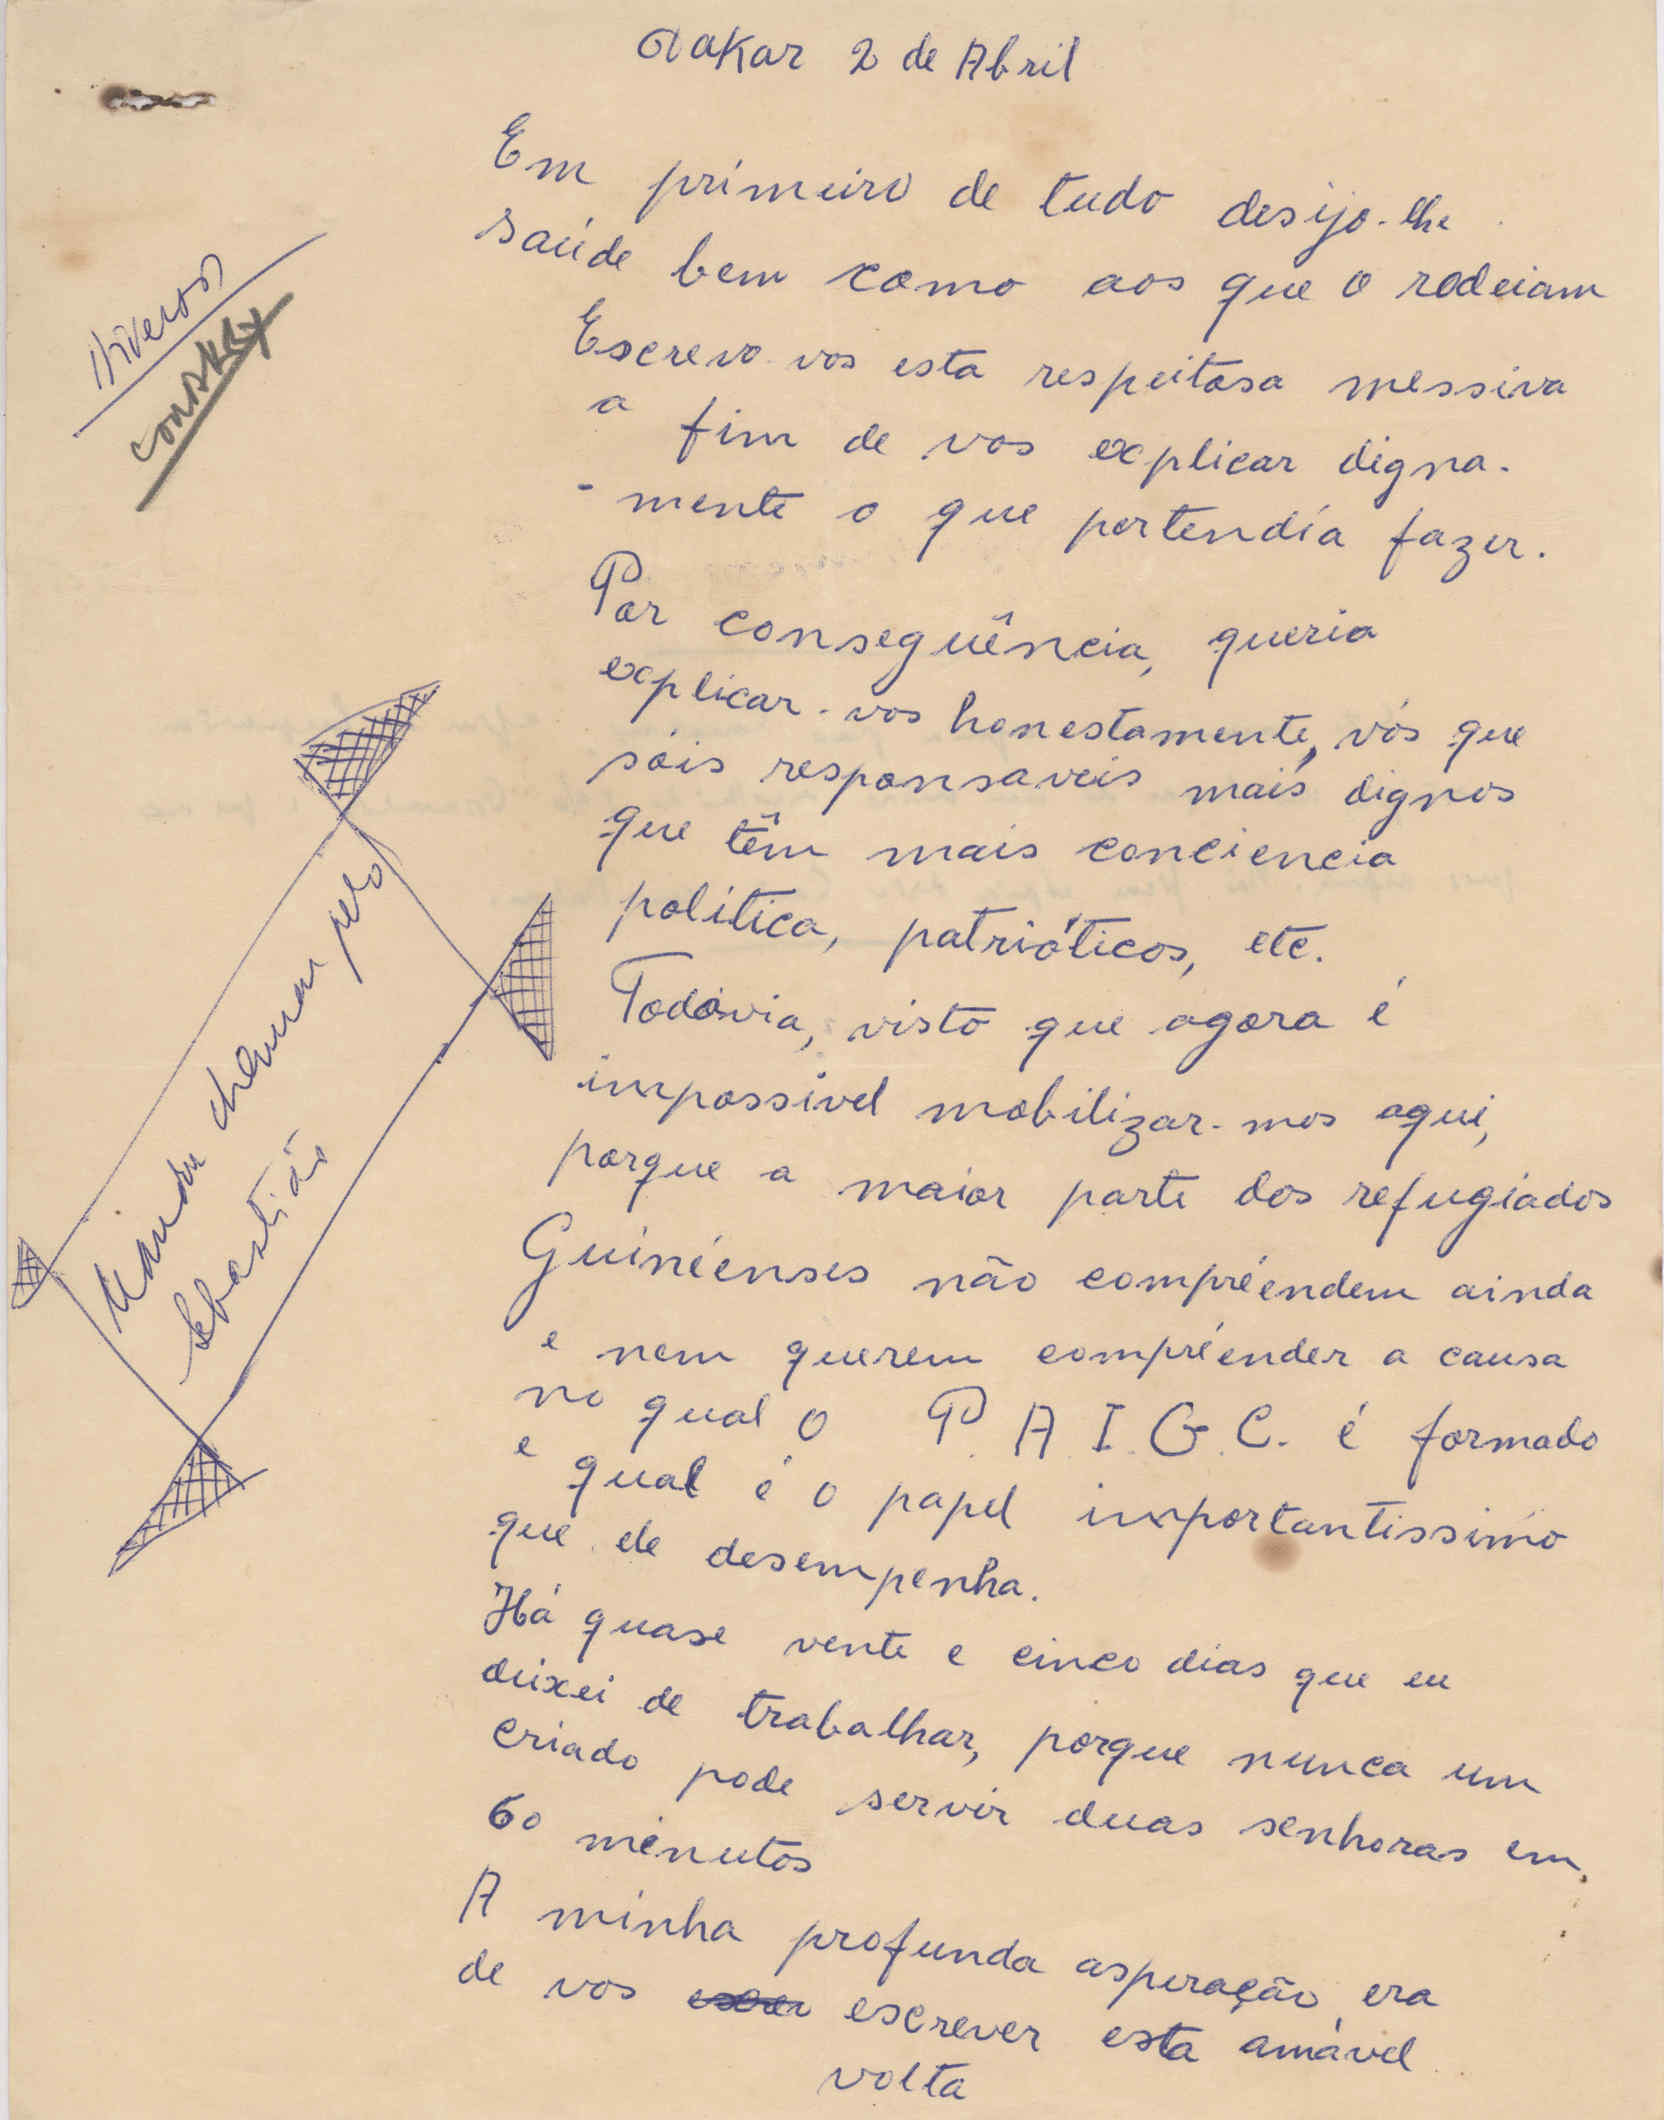 Dakar 2 de Abril
Em primeiro de tudo desijo-lhe
saúde bem como aos que o rodeiam
Escrevo-vos esta respeitosa messiva
a fim de vos explicar digna-
-mente o que pertendia fazer.
Por conseguência, queria
explicar-vos honestamente, vós que
sóis responsaveis mais dignos
que têm mais conciencia
politica, patrióticos, etc.
Todavia, visto que agora é
impossivel mobilizar-mos aqui,
porque a maior parte dos refugiados
Guinéenses não compréendem ainda
e nem querem compréender a causa
no qual o P.A.I.G.C. é formado
e qual é o papel importantissimo
que ele desempenha.
Há quase vente e cinco dias que eu
deixei de trabalhar, porque nunca um
criado pode servir duas senhoras em
60 minutos
A minha profunda aspiração era
de vos escrever esta amável
volta
Diversos
Conakry
Mandou chamar pelo
Sebastião